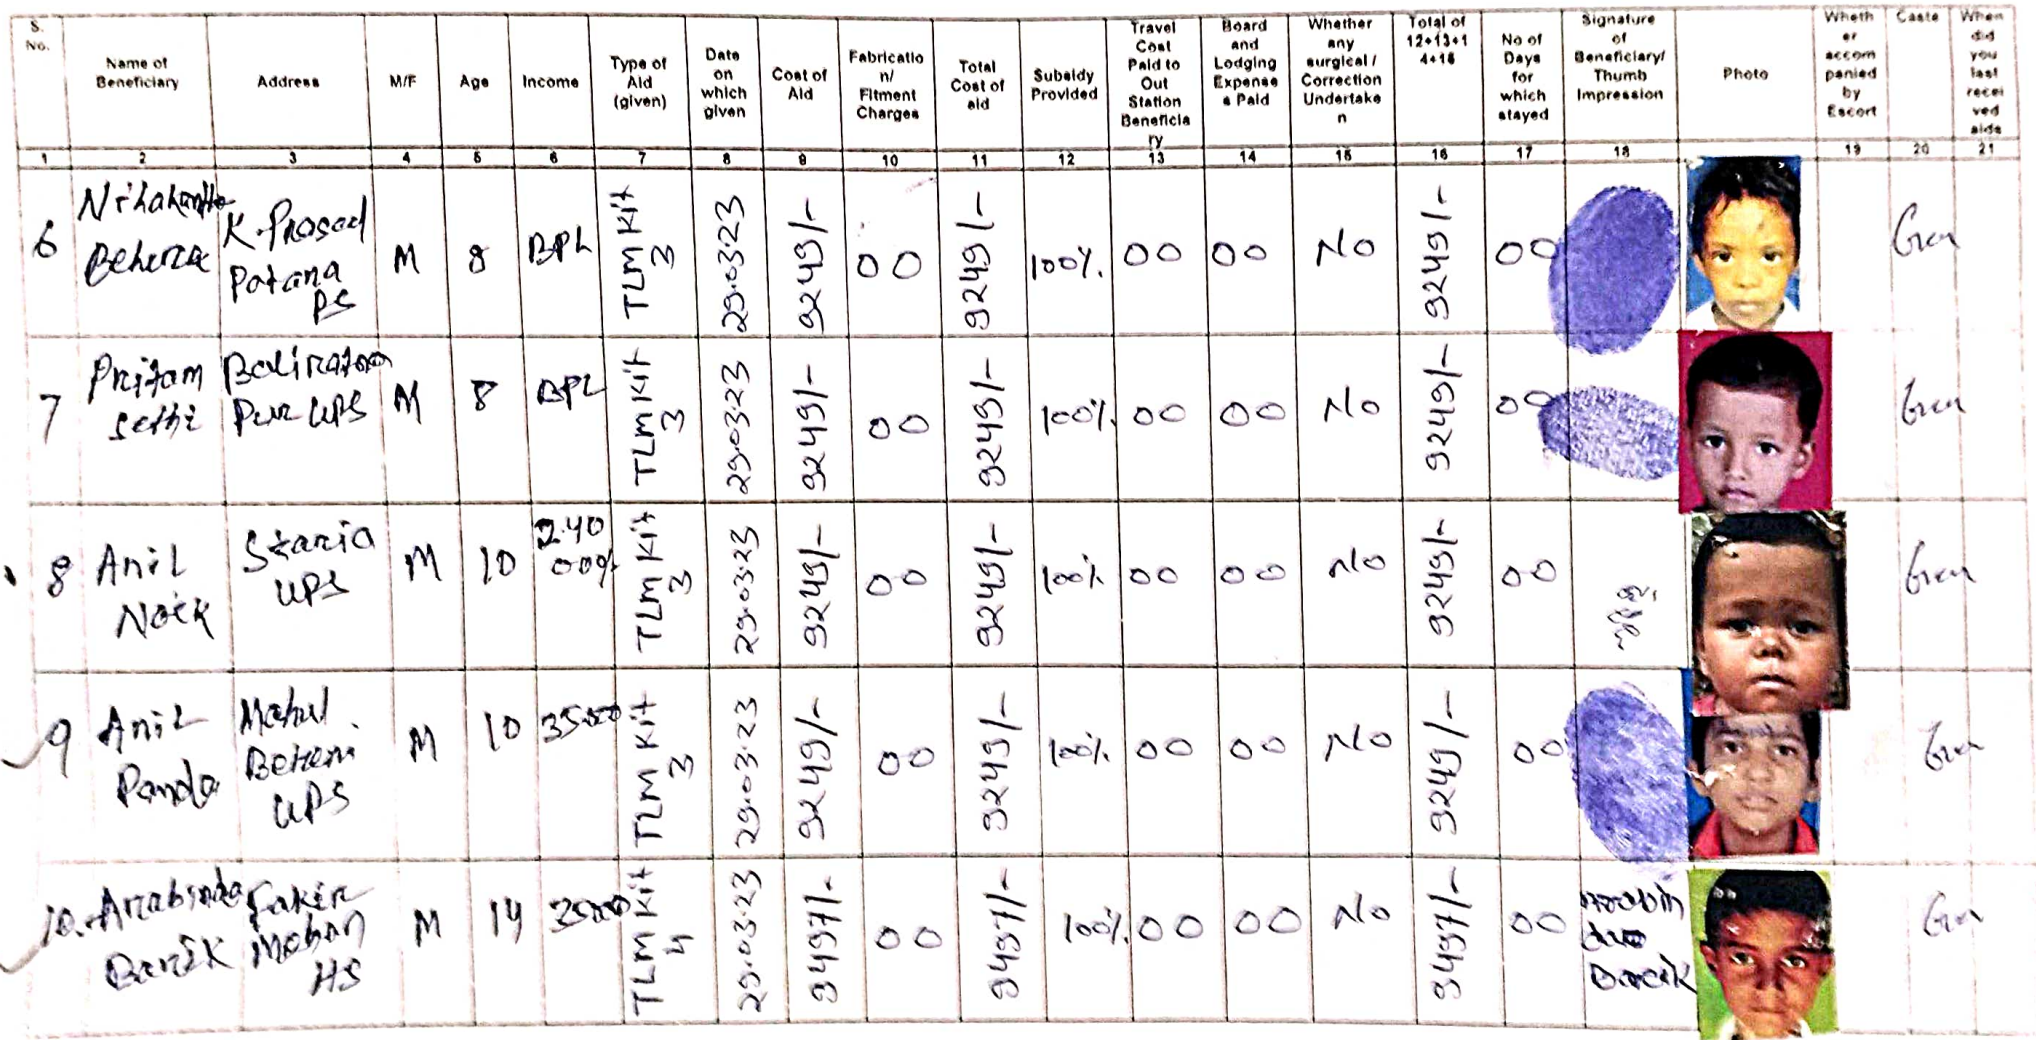 S. No. Name of Beneficiary Address M/F Age Income Type of Aid (given) Date on which given Cost of Aid Fabricatio n/ Fitment Charges Total Cost of aid Subsidy Provided Travel Cost Paid to Out Station Beneficia ry Board and Lodging Expense s Paid Whether any surgical / Correction Undertake n Total of 12+13+1 4+15 No of Days for which stayed Signature of Beneficiary/ Thumb Impression Photo Wheth er accom panied by Escort Caste When did you last recei ved aids
1 2 3 4 5 6 7 8 9 10 11 12 13 14 15 16 17 18 19 20 21
6 Behera K. Prasad Patana PS M 8 BPL TLM Kit 3 29.03.23 9249/- 00 9249/- 100% 00 00 No 9249/- 00 Gen
7 Pritam Sethi Pur UPS M 8 BPL TLM Kit 3 29.03.23 9249/- 00 9249/- 100% 00 00 No 9249/- 00 Gen
8 Anil Naik UPS M 10 TLM Kit 3 29.03.23 9249/- 00 9249/- 100% 00 00 No 9249/- 00 Gen
9 Anil Panda UPS M 10 TLM Kit 3 29.03.23 9249/- 00 9249/- 100% 00 00 No 9249/- 00 Gen
10. Arabinda Barik Fakir Mohan HS M 14 TLM Kit 4 29.03.23 9497/- 00 9497/- 100% 00 00 No 9497/- 00 Barik Gen